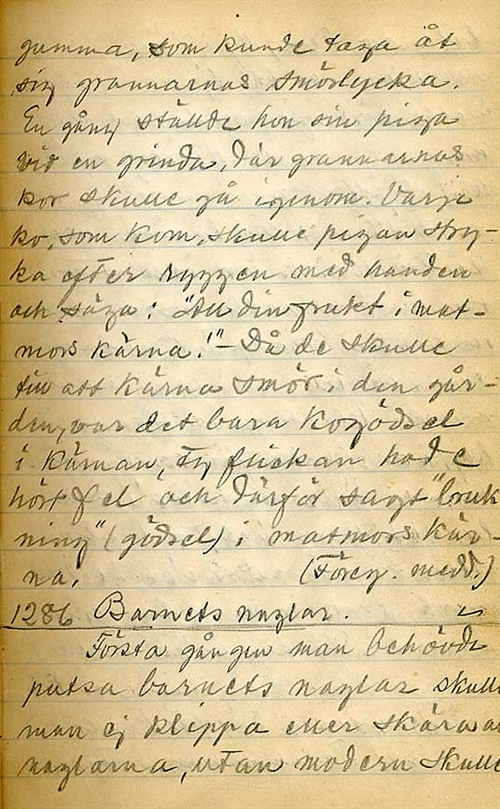 gumma, som kunde taga åt
sig grannarnas smörlycka.
En gång ställde hon sin piga
vid en grinda, där grannarnas
kor skulle gå igenom. Varje
ko, som kom, skulle pigan stry-
ka efter ryggen med handen
och säga: "All din frukt i mat-
mors kärna!" – Då de skulle
till att kärna smör i den går-
den, var det bara kogödsel
i kärnan, ty flickan hade
hört fel och därför sagt "bruk
ning" (gödsel) i matmors kär-
na. (Föreg. medd.)
1286 Barnets naglar.
Första gången man behövde
putsa barnets naglar skulle
man ej klippa eller skära av
naglarna, utan modern skulle